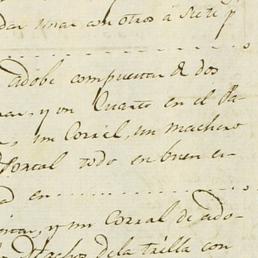 dar unas con otros á siete p
adobe compuestas de dos
nas, y un Quarto en el Pa-
, un Corral, un machero
Portal todo en buen es-
a en
, y un Corral de ado-
Machos de la trilla con